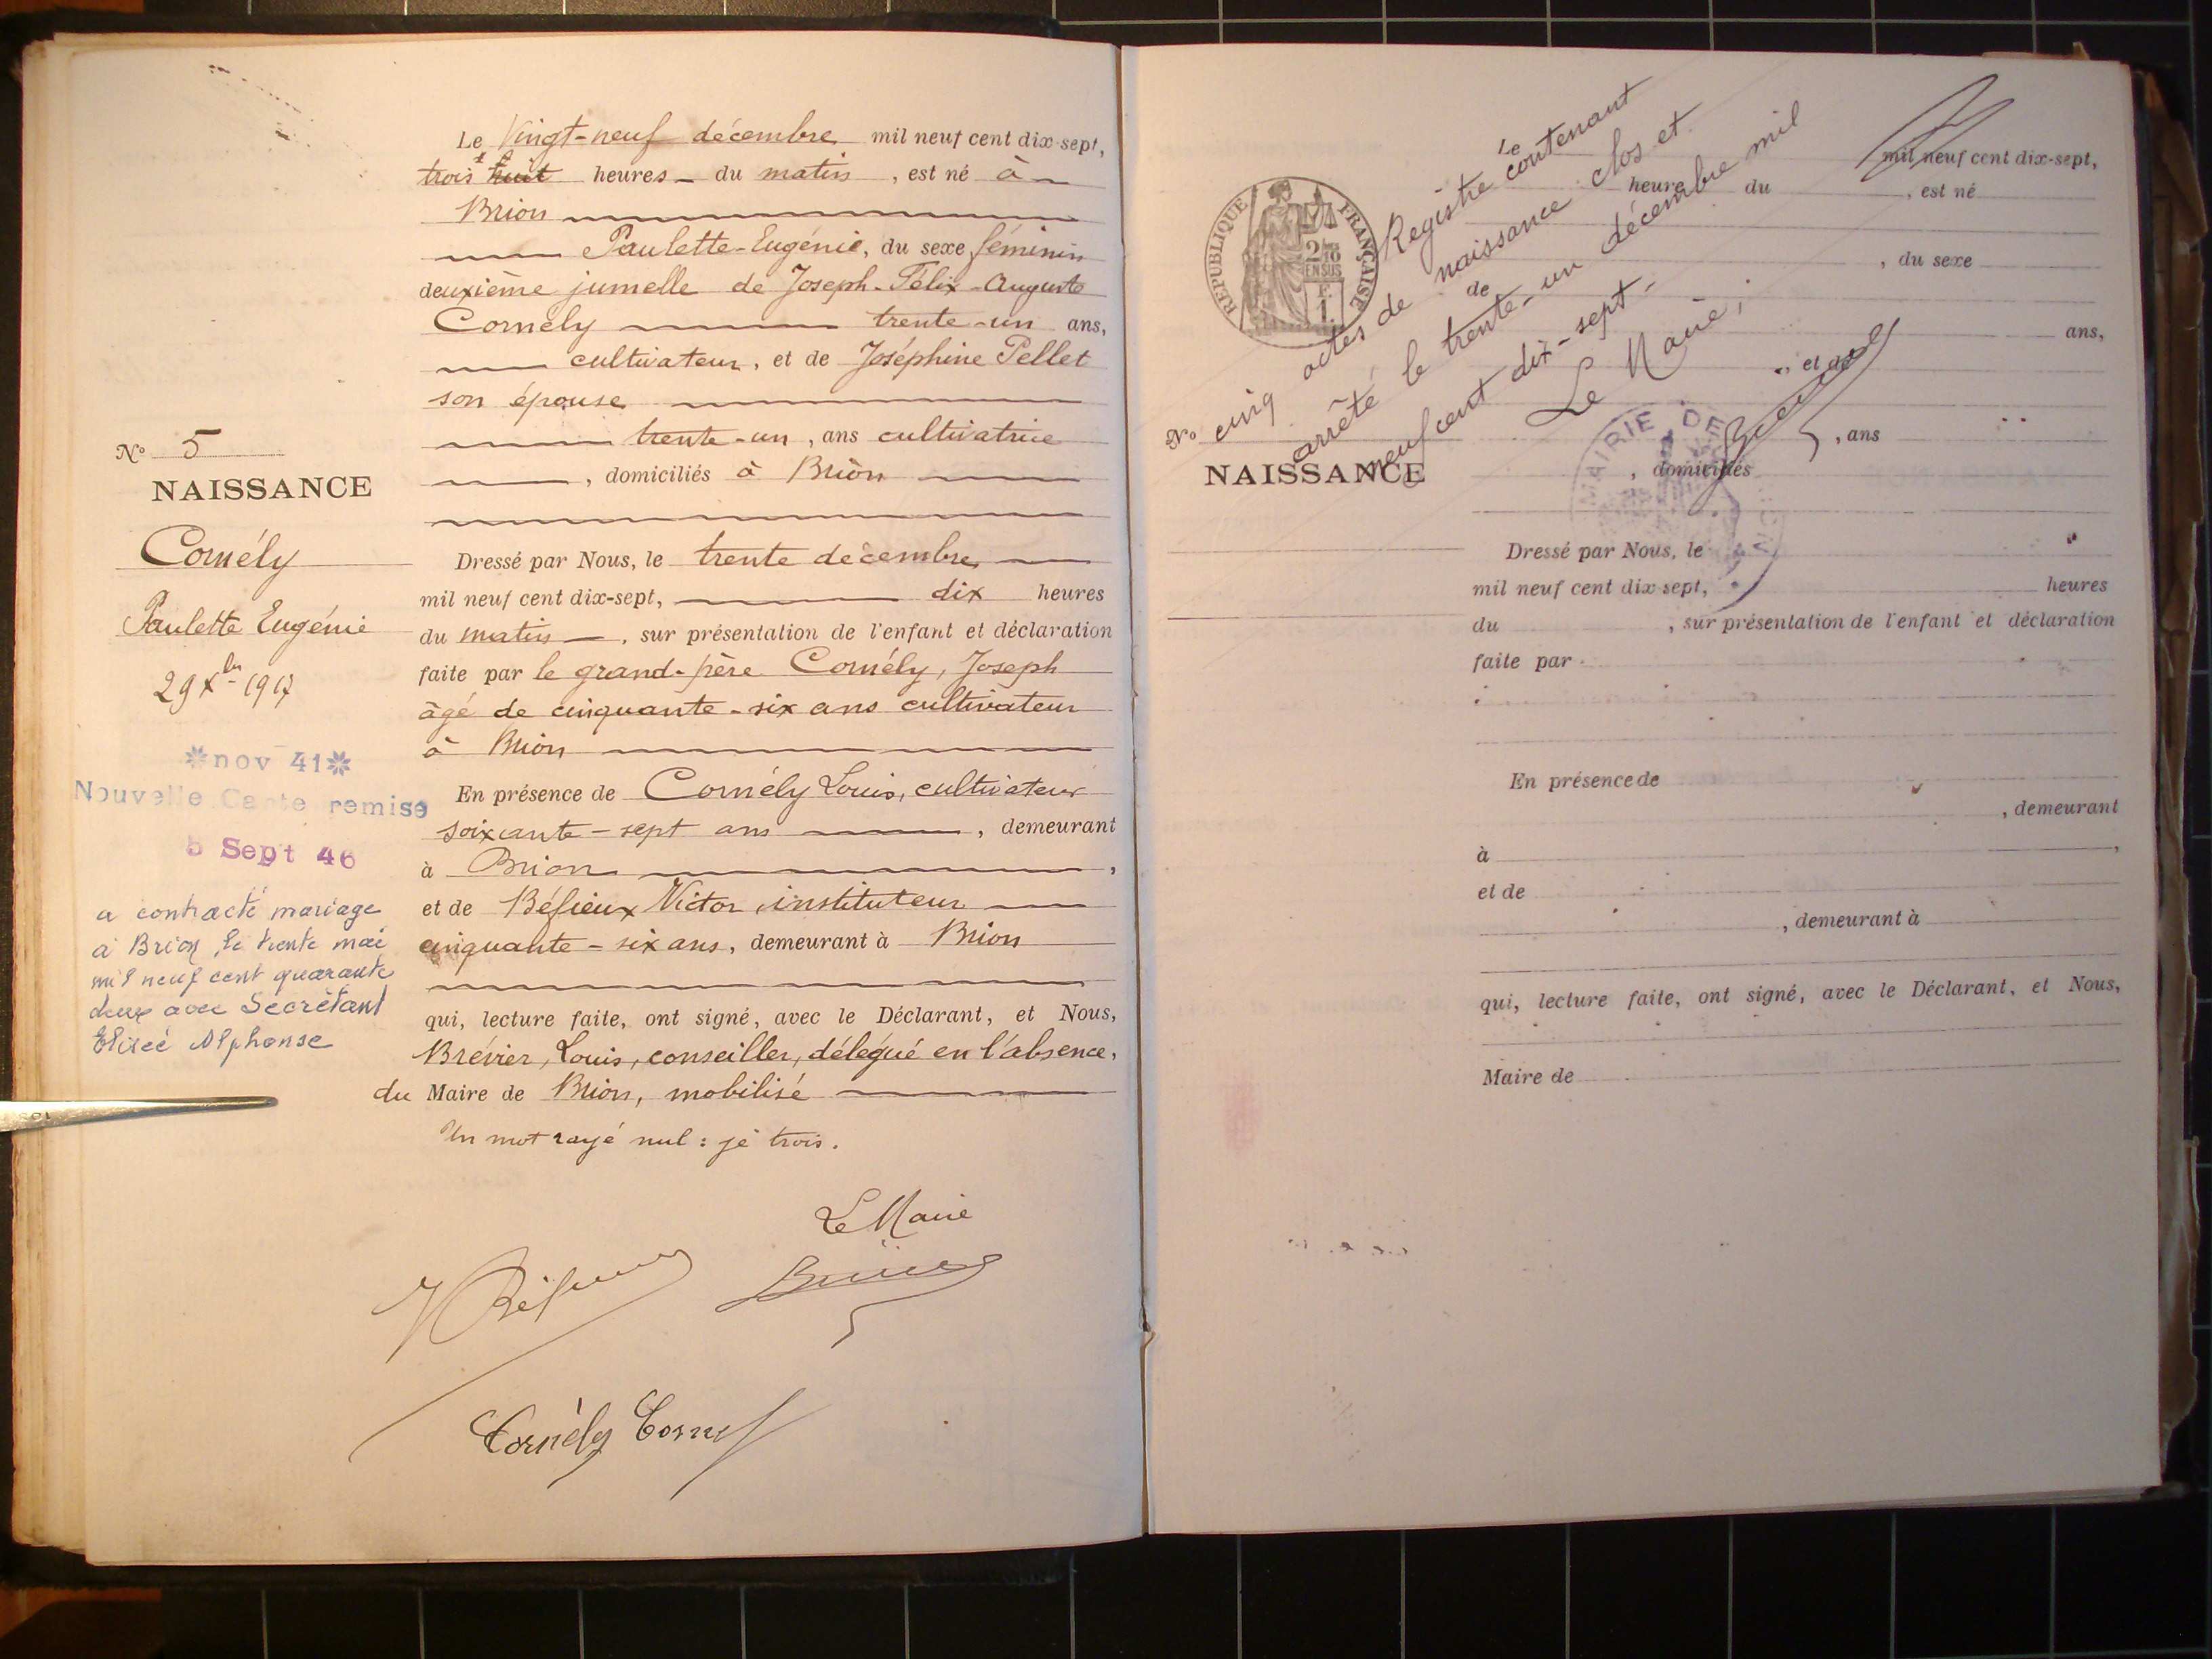 Le Vingt-neuf décembre mil neuf cent dix-sept,
trois huit heures du matin, est né à
Brion
Paulette-Eugénie, du sexe féminin
deuxième jumelle de Joseph-Félix-Auguste
Cornély trente-un ans,
cultivateur, et de Joséphine Pellet
son épouse
trente-un, ans cultivatrice
, domiciliés à Brion
No 5
NAISSANCE
Cornély
Paulette Eugénie
29 Xbre 1917
*nov 41*
Nouvelle Carte remise
5 Sept 46
a contracté mariage
à Brion, le trente mai
mil neuf cent quarante
deux avec Secrétant
Elisée Alphonse
Dressé par Nous, le trente décembre
mil neuf cent dix-sept, dix heures
du matin, sur présentation de l'enfant et déclaration
faite par le grand-père Cornély, Joseph
âgé de cinquante-six ans cultivateur
à Brion
En présence de Cornély Louis, cultivateur
soixante-sept ans, demeurant
à Brion,
et de Béfieux Victor, instituteur
cinquante-six ans, demeurant à Brion
qui, lecture faite, ont signé, avec le Déclarant, et Nous,
Brévier, Louis, conseiller, délégué en l'absence,
du Maire de Brion, mobilisé
Un mot rayé nul : je trois.
Le Maire
Cornély
Registre contenant
cinq actes de naissance clos et
arrêté le trente-un décembre mil
neuf cent dix-sept.
Le Maire,
RÉPUBLIQUE FRANÇAISE
2/10
EN SUS
F.
1.
MAIRIE DE
Le mil neuf cent dix-sept,
heure du , est né
, du sexe
de
ans,
, et de
, ans
, domiciliés
No
NAISSANCE
Dressé par Nous, le
mil neuf cent dix-sept, heures
du , sur présentation de l'enfant et déclaration
faite par
En présence de
, demeurant
à ,
et de
, demeurant à
qui, lecture faite, ont signé, avec le Déclarant, et Nous,
Maire de